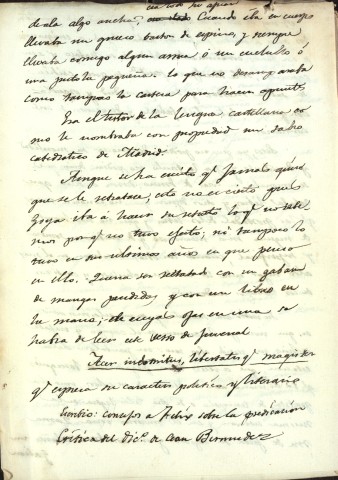 de ala algo ancha; Cuando iba en cuerpo
llevaba un grueso baston de espino, y siempre
llevaba consigo algun arma ó un cuchillo ó
una pistola pequeña. lo que no desamparaba
como tampoco la cartera para hacer apuntes
Era el textor de la lengua castellana co
mo le nombraba con propiedad un sabio
catedratico de Madrid.
Aunque se ha escrito qe. jamas quiso
que se le retratase, esto no es cierto pues
Goya iba á hacer su retrato lo qe. no sabe
mos porqe. no tuvo efecto; ni tampoco lo
tuvo en sus ultimos años en que penso
en ello. Queria ser retratado con un gaban
de mangas perdidas, y con un libro en
la mano, en una se
habia de leer este verso de Juvenal
libertatis qe. magister
qe. espresa su caracter politico y literario
a Felix sobre la predicacion
Critica del Dico. de Cean Bermudez